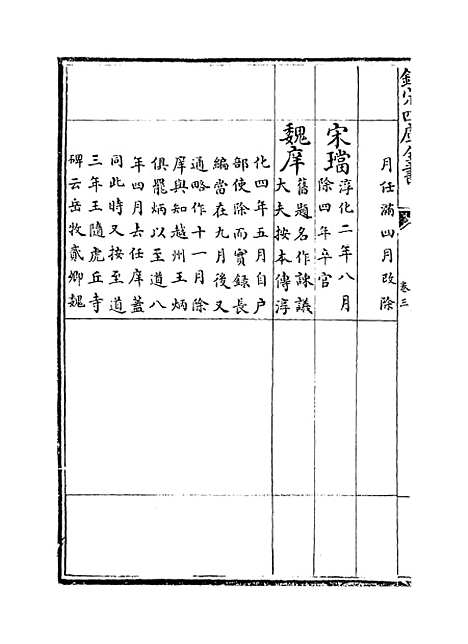 欽定四庫全書
卷三
月任滿四月改除
宋璫
淳化二年八月
除四年卒官
魏庠
舊題名作諫議
大夫按本傳淳
化四年五月自户
部使除而實録長
編當在九月後又
通略作十一月除
庠與知越州王炳
俱罷炳以至道八
年四月去任庠蓋
同此時又按至道
三年王隨虎丘寺
碑云岳牧貳卿魏